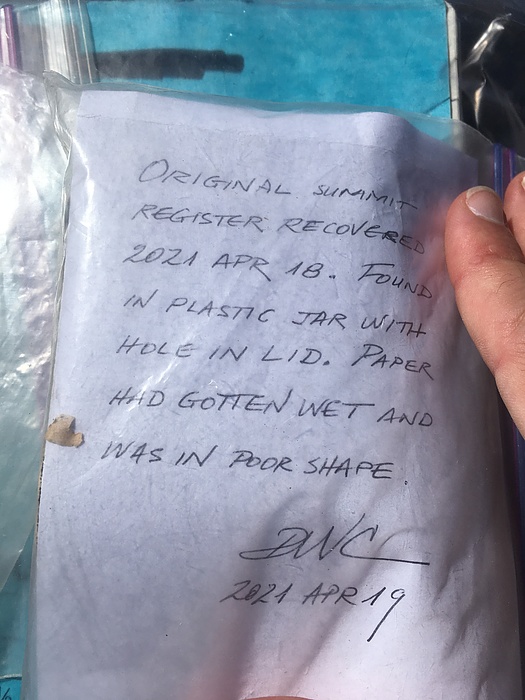 ORIGINAL SUMMIT
REGISTER RECOVERED
2021 APR 18. FOUND
IN PLASTIC JAR WITH
HOLE IN LID. PAPER
HAD GOTTEN WET AND
WAS IN POOR SHAPE.
DWC
2021 APR 19